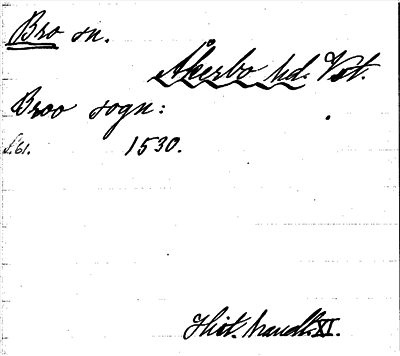 Bro sn.
Åkerbo hd. Vst.
Broo sogn:
s. 61. 1530.
Hist. handl. XI.